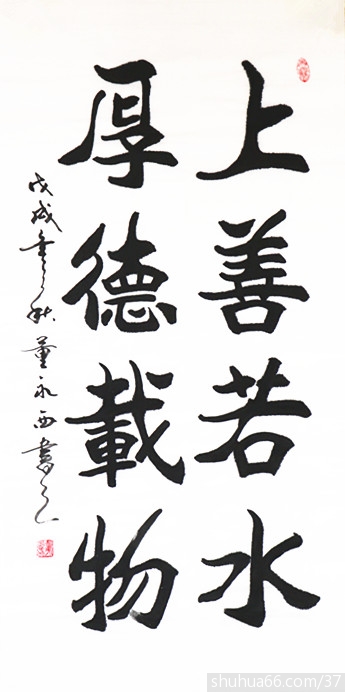 上善若水
厚德載物
戊戌年之秋董永西書之
shuhua66.com/37